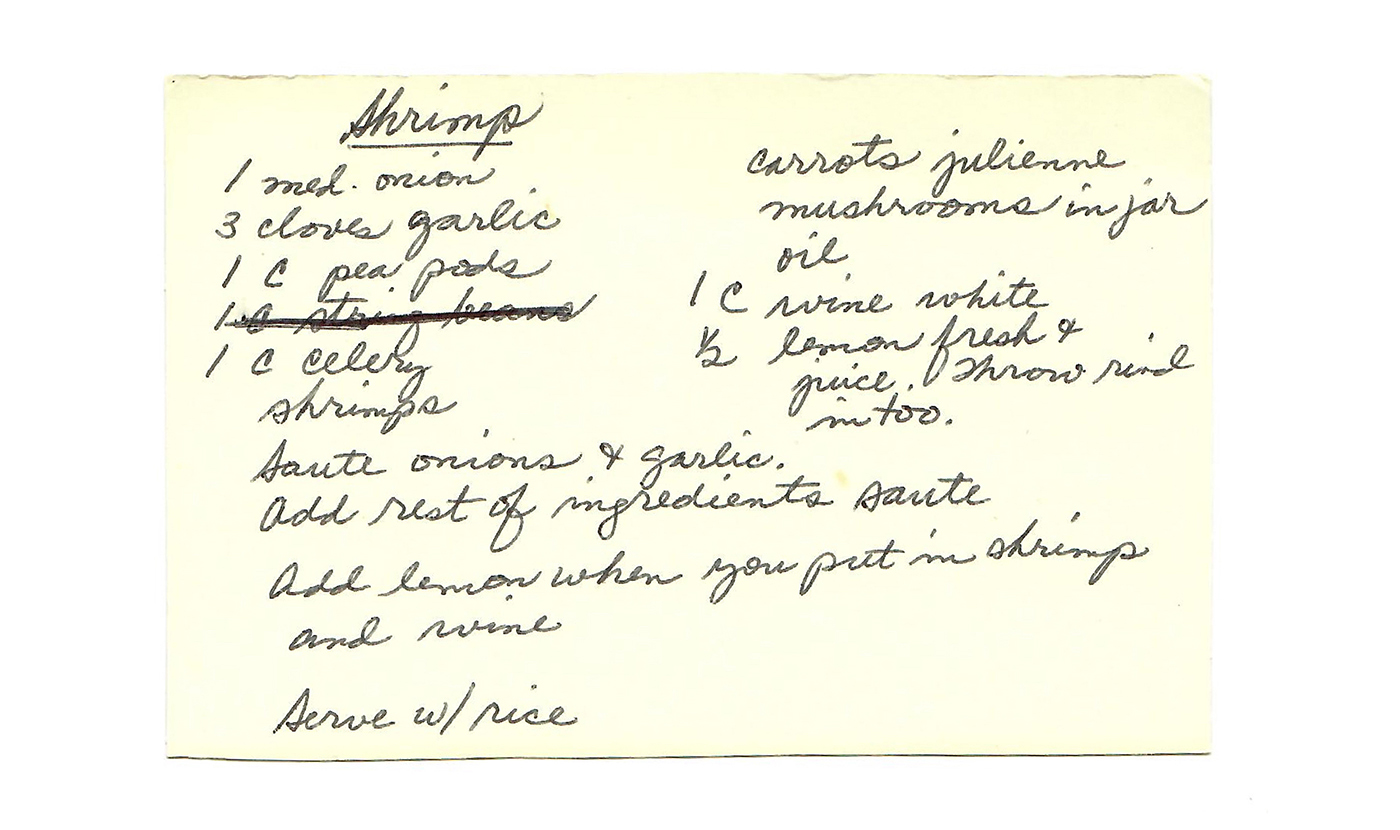 Shrimp
1 med. onion
3 cloves garlic
1 C pea pods
1 C string beans
1 C celery
shrimps
carrots julienne
mushrooms in jar
oil
1 C wine white
1/2 lemon fresh &
juice. Throw rind
in too.
Saute onions & garlic.
Add rest of ingredients saute
Add lemon when you put in shrimp
and wine
Serve w/ rice